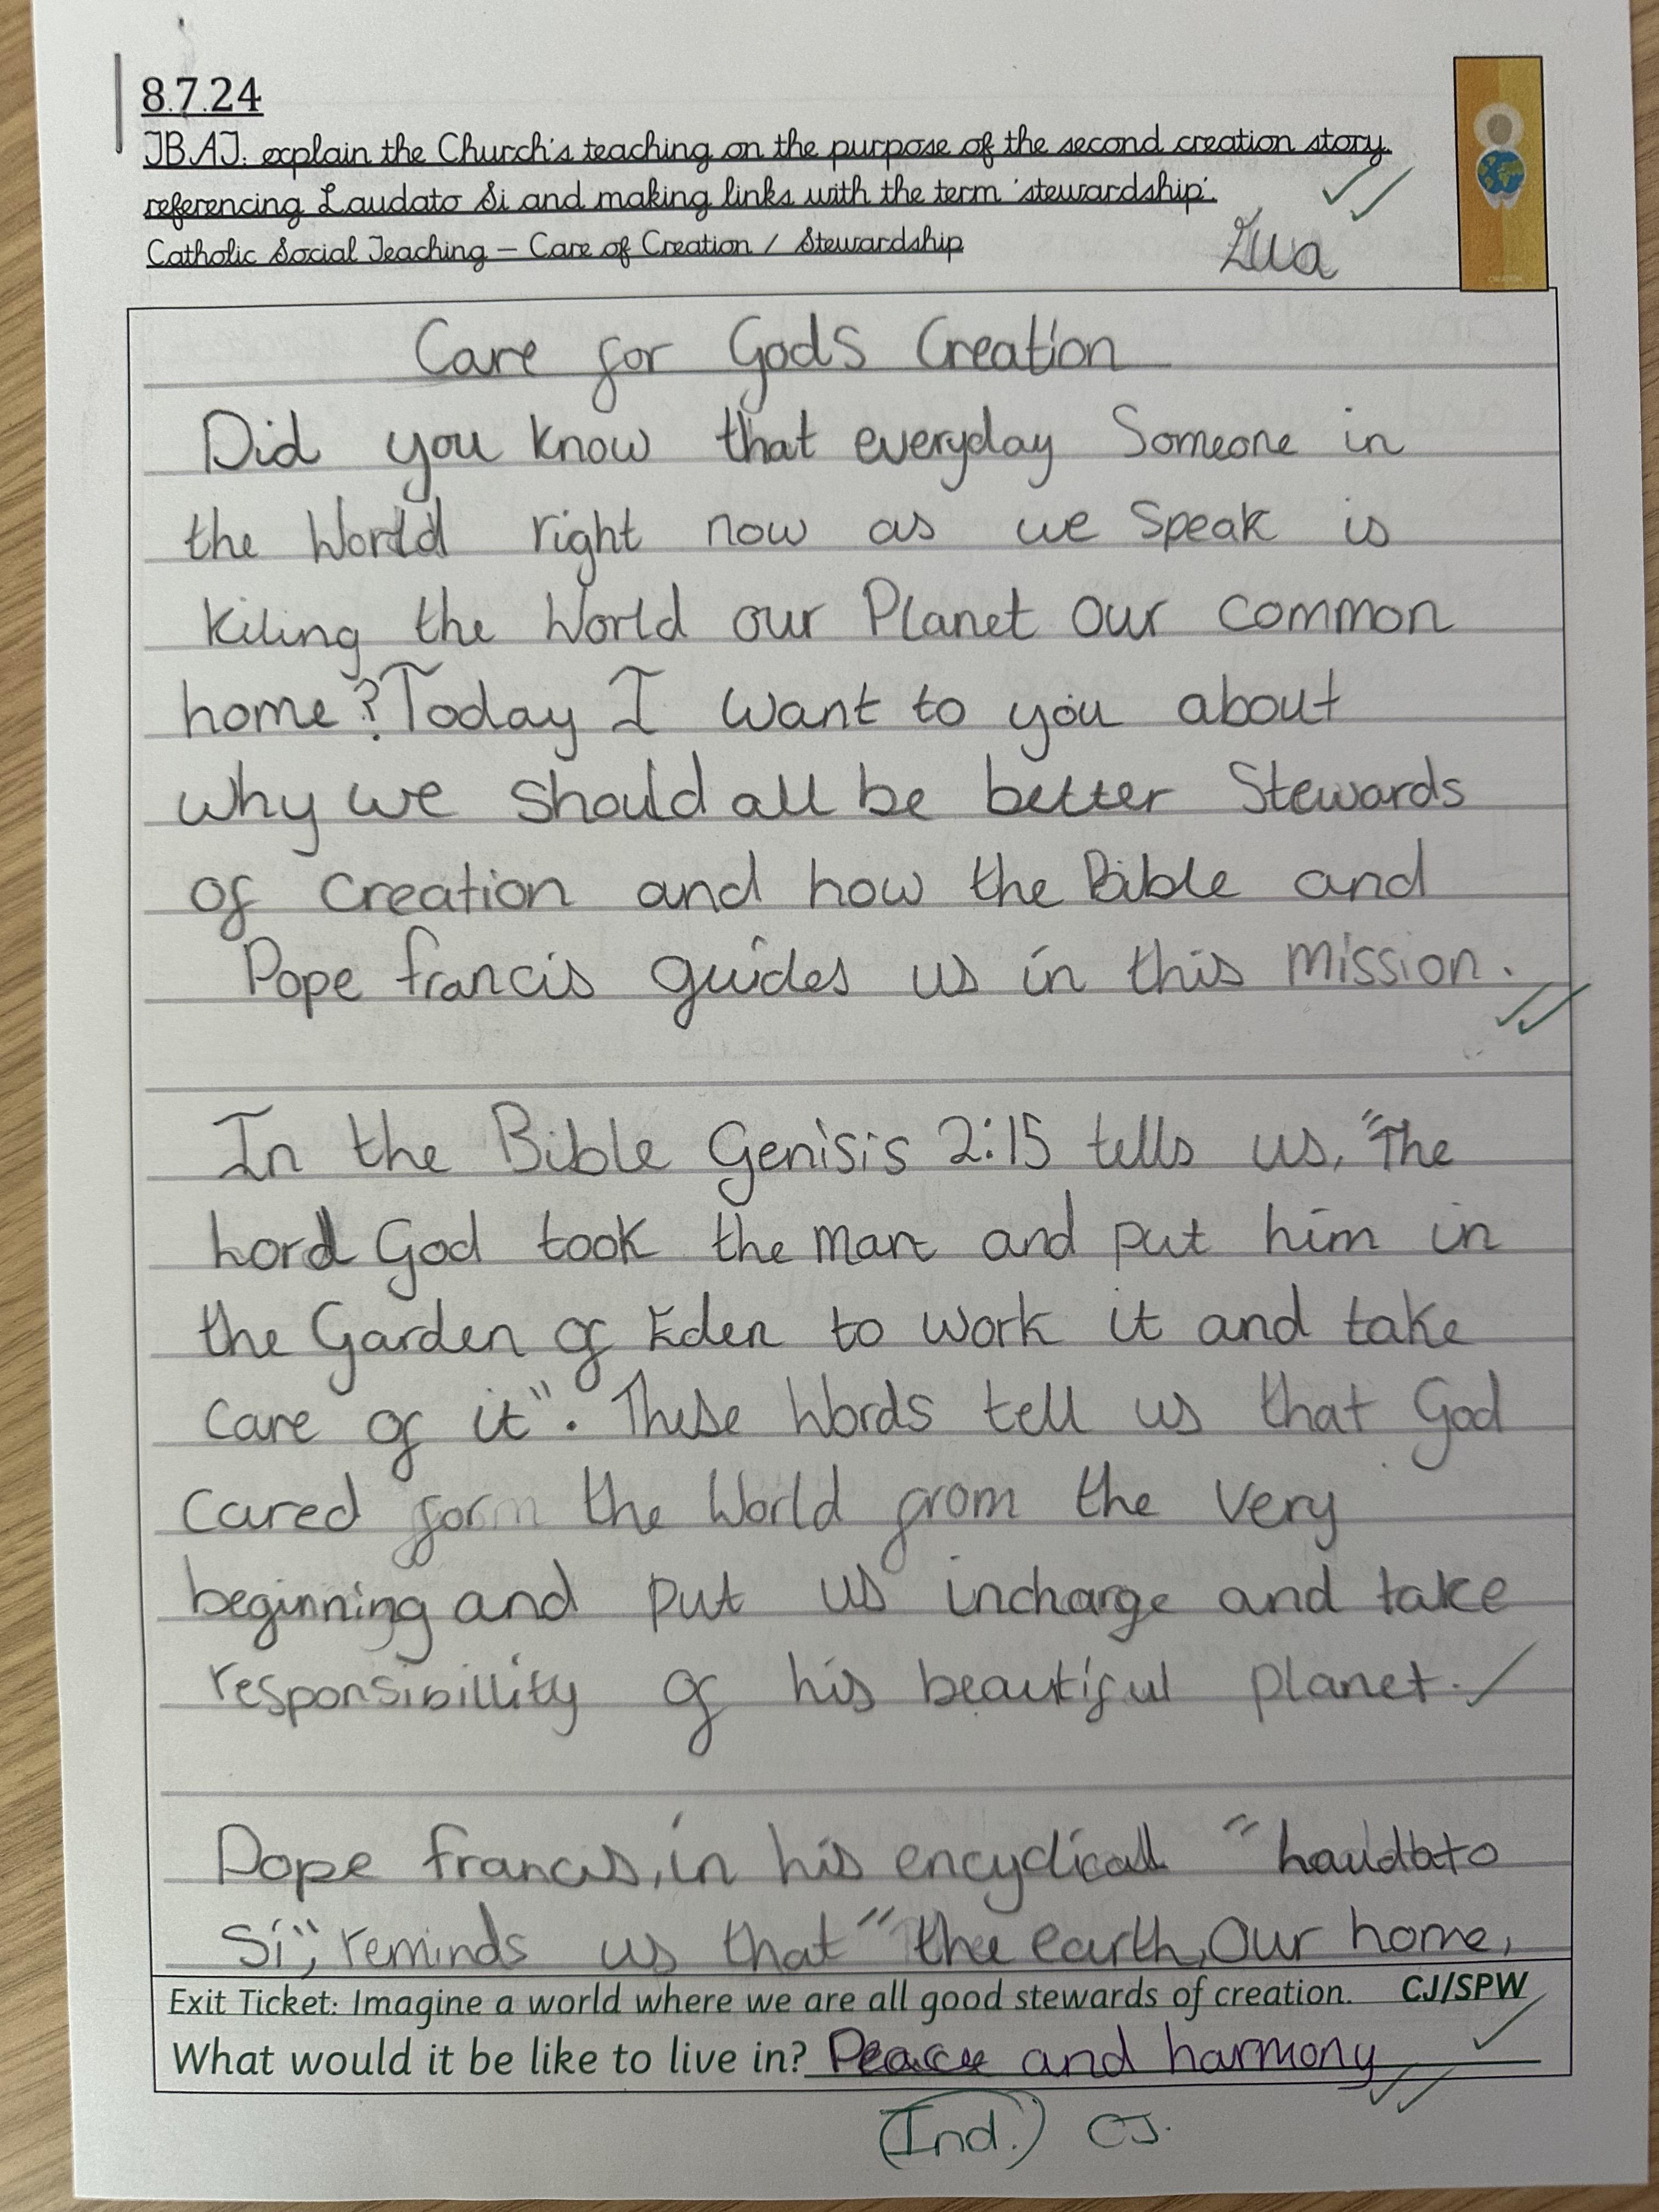 8.7.24
TBAT: explain the Church's teaching on the purpose of the second creation story,
referencing Laudato Si and making links with the term 'stewardship'.
Catholic Social Teaching – Care of Creation / Stewardship
Care for Gods Creation
Did you know that everyday Someone in
the World right now as we speak is
kiling the World our Planet our common
home? Today I want to you about
why we should all be better Stewards
of creation and how the Bible and
Pope francis guides us in this mission.
In the Bible Genisis 2:15 tells us, "The
Lord God took the man and put him in
the Garden of Eden to work it and take
care of it". These Words tell us that God
cared form the World from the very
beginning and put us incharge and take
responsibillity of his beautiful planet.
Pope francis, in his encyclical "Laudato
Si", reminds us that "the earth, our home,
Exit Ticket: Imagine a world where we are all good stewards of creation. CJ/SPW
What would it be like to live in? Peace and harmony
(Ind.) CJ.